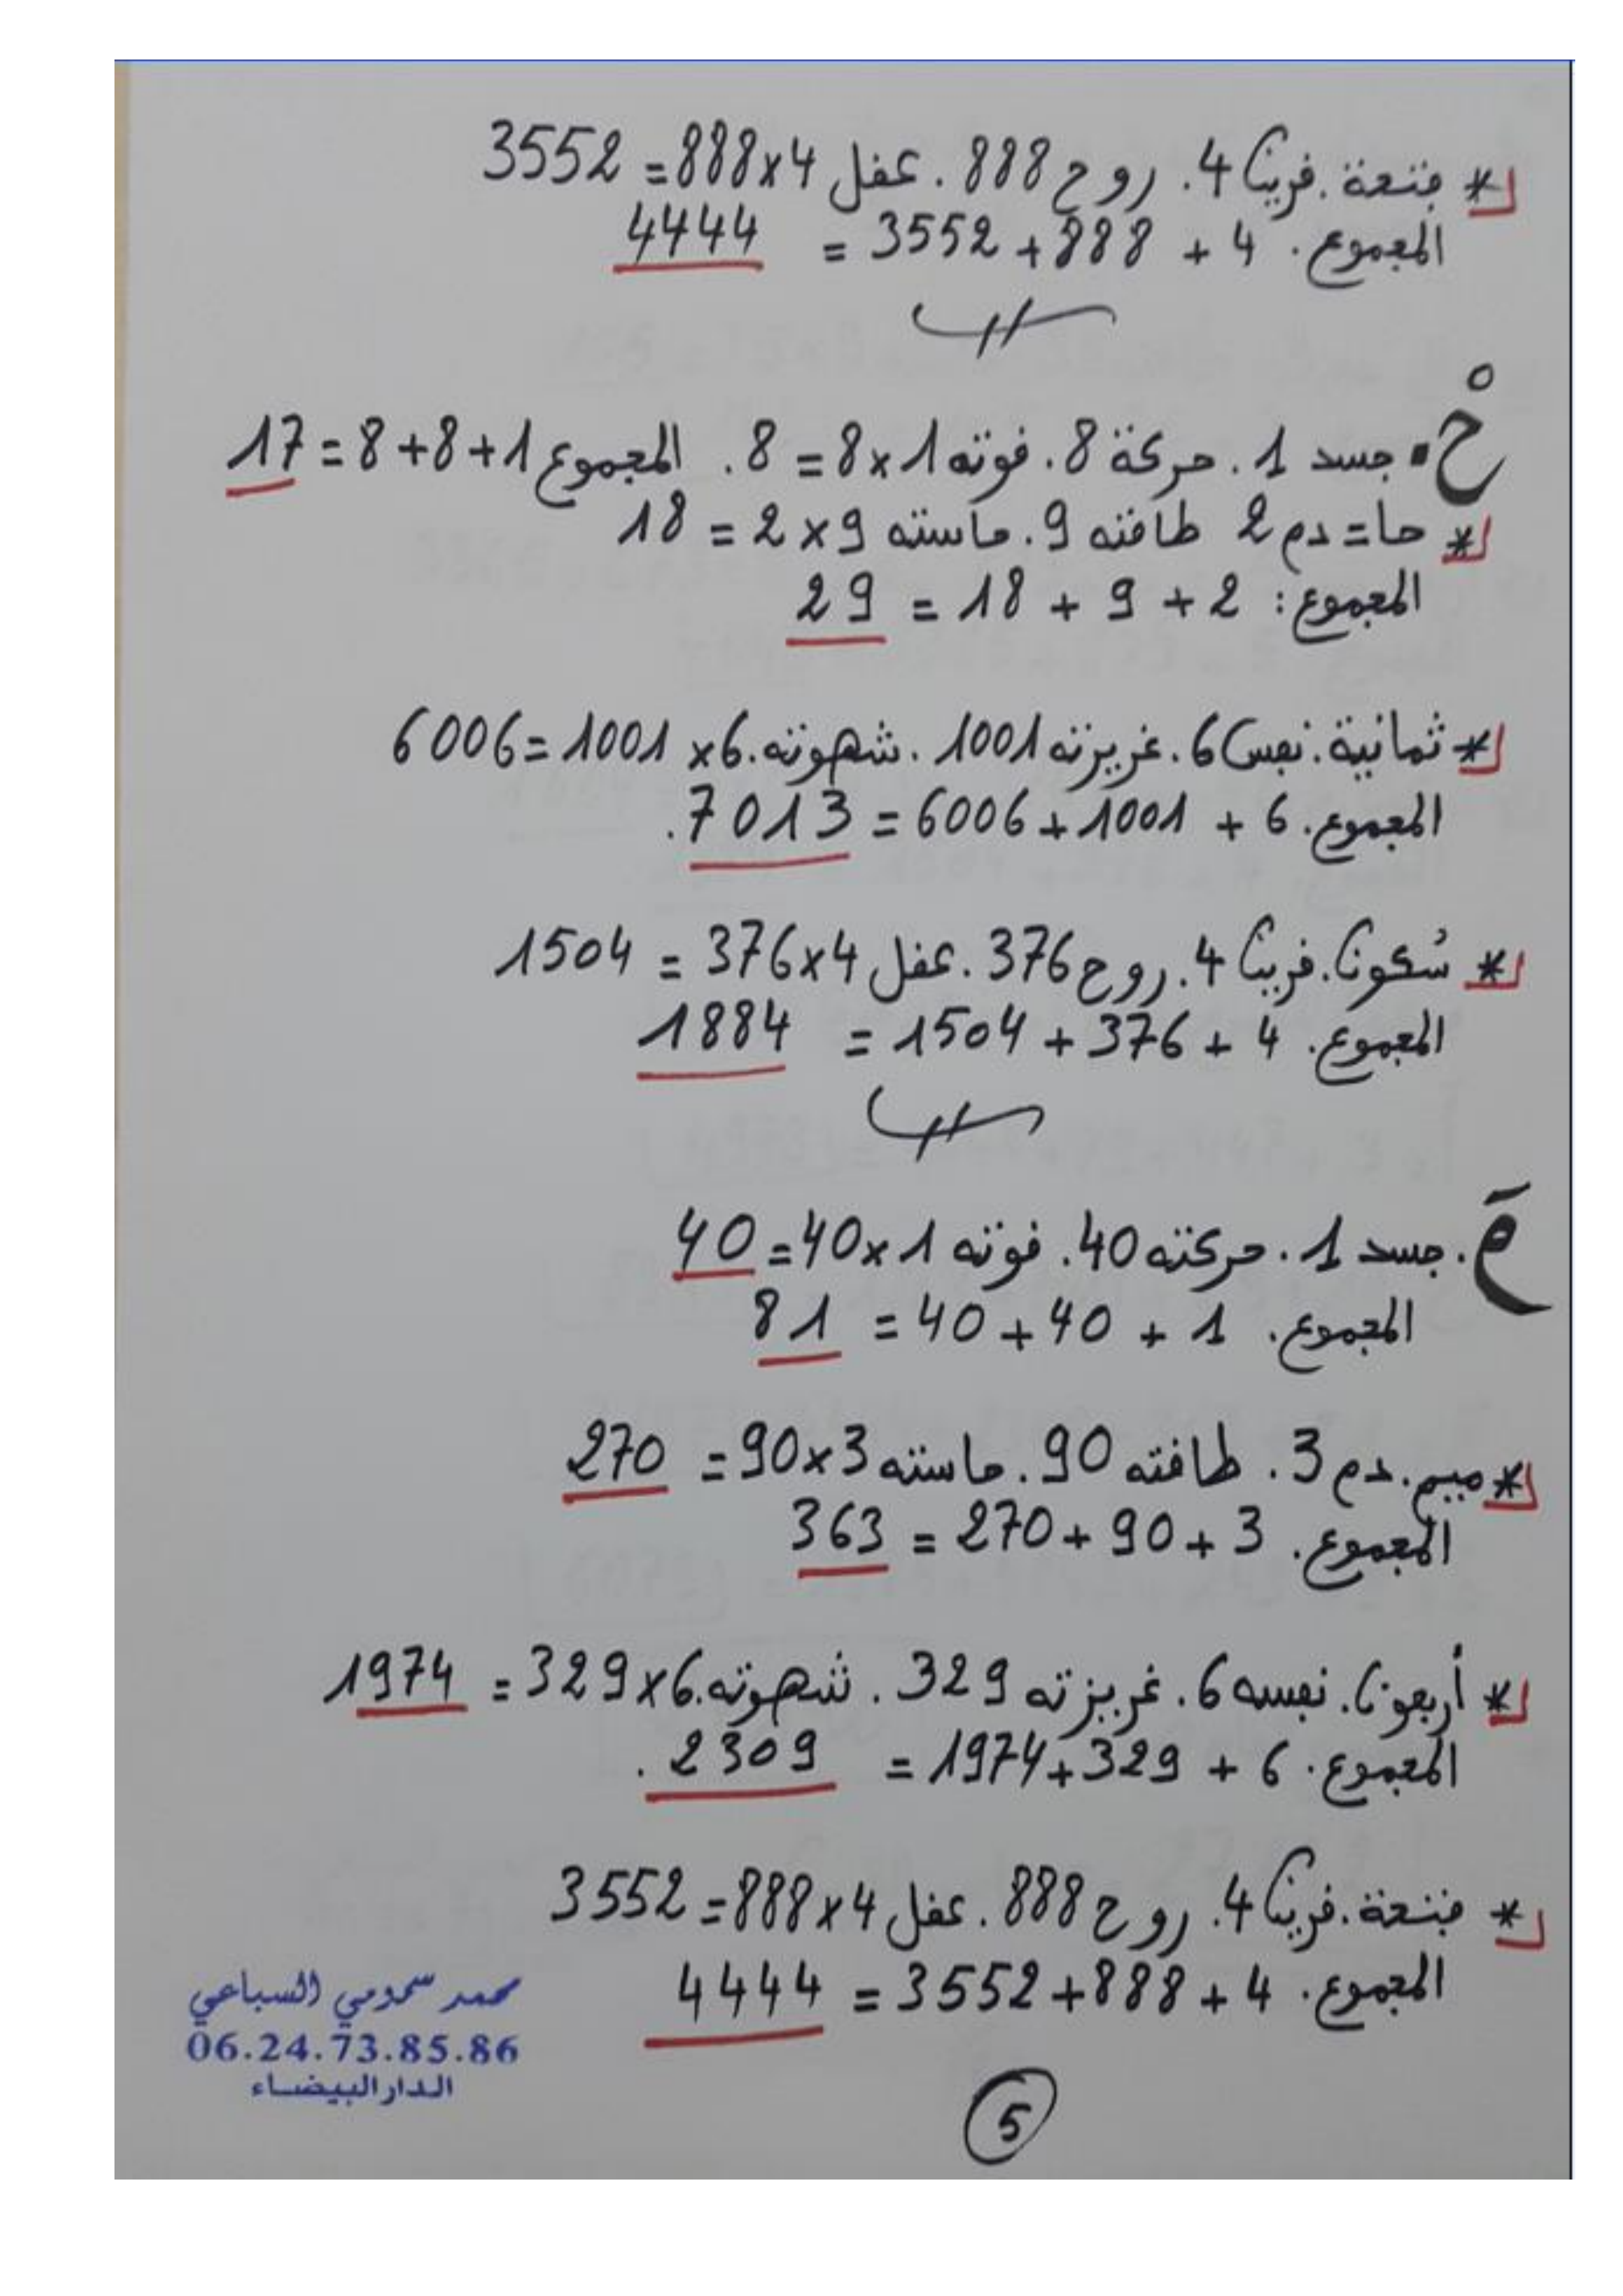 * فتحة. قرينا 4. روح 888. عقل 4×888 = 3552
المجموع. 4 + 888+ 3552 = 4444
حْ. جسد 1. حركة 8. قوته 1×8 = 8. المجموع 1+8+8 = 17
* حا = دم 2 طاقته 9. حاسته 9 × 2 = 18
المجموع: 2 + 9 + 18 = 29
* ثمانية. نفس 6. غريزته 1001. شهوته. 6× 1001=6006
المجموع. 6 + 1001+ 6006 = 7013.
* سُكون. قرينا 4. روح 376. عقل 4×376 = 1504
المجموع. 4 + 376 + 1504 = 1884
مَ. جسد 1. حركته 40. قوته 1×40= 40
المجموع. 1 + 40 + 40 = 81
* ميم. دم 3. طاقته 90. حاسته 3×90 = 270
المجموع. 3 + 90 + 270 = 363
* أربعون. نفسه 6. غريزته 329. شهوته. 6×329 = 1974
المجموع. 6 + 329+1974 = 2309.
* فتحة. قرينا 4. روح 888. عقل 4×888= 3552
المجموع. 4 + 888+ 3552 = 4444
محمد سمومي السباعي
06.24.73.85.86
الدار البيضاء
5